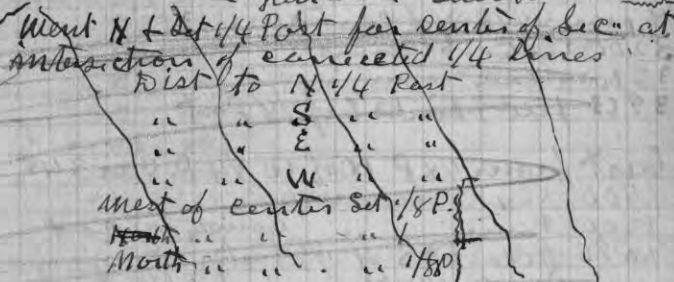 Went N & Set 1/4 Post for center of Sec. at
intersection of corrected 1/4 lines
Dist to N 1/4 Post
" " S " "
" " E " "
" " W " "
West of center Set 1/8 P.
North " " "
North " " " 1/8 P